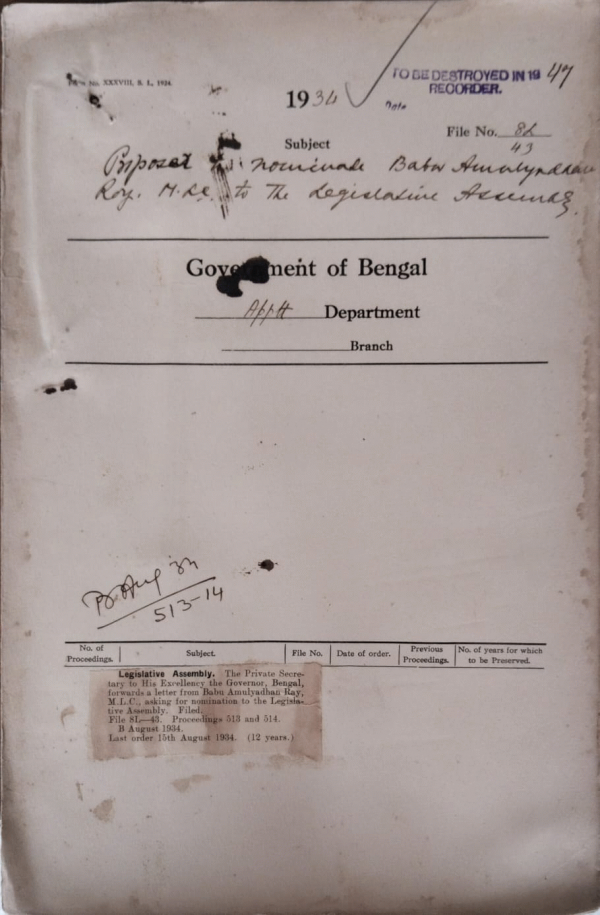 Form No. XXXVIII, S. I., 1934.
TO BE DESTROYED IN 1947
RECORDER.
Date
1934
File No. 8L
43
Subject
Proposal to nominate Babu Amulyadhan
Roy. M.L.C. to the Legislative Assembly.
Government of Bengal
Appt Department
Branch
B Aug 34
513-14
No. of Proceedings. Subject. File No. Date of order. Previous Proceedings. No. of years for which to be Preserved.
Legislative Assembly. The Private Secre-
tary to His Excellency the Governor, Bengal,
forwards a letter from Babu Amulyadhan Ray,
M.L.C., asking for nomination to the Legisla-
tive Assembly. Filed.
File 8L—43. Proceedings 513 and 514.
B August 1934.
Last order 15th August 1934. (12 years.)